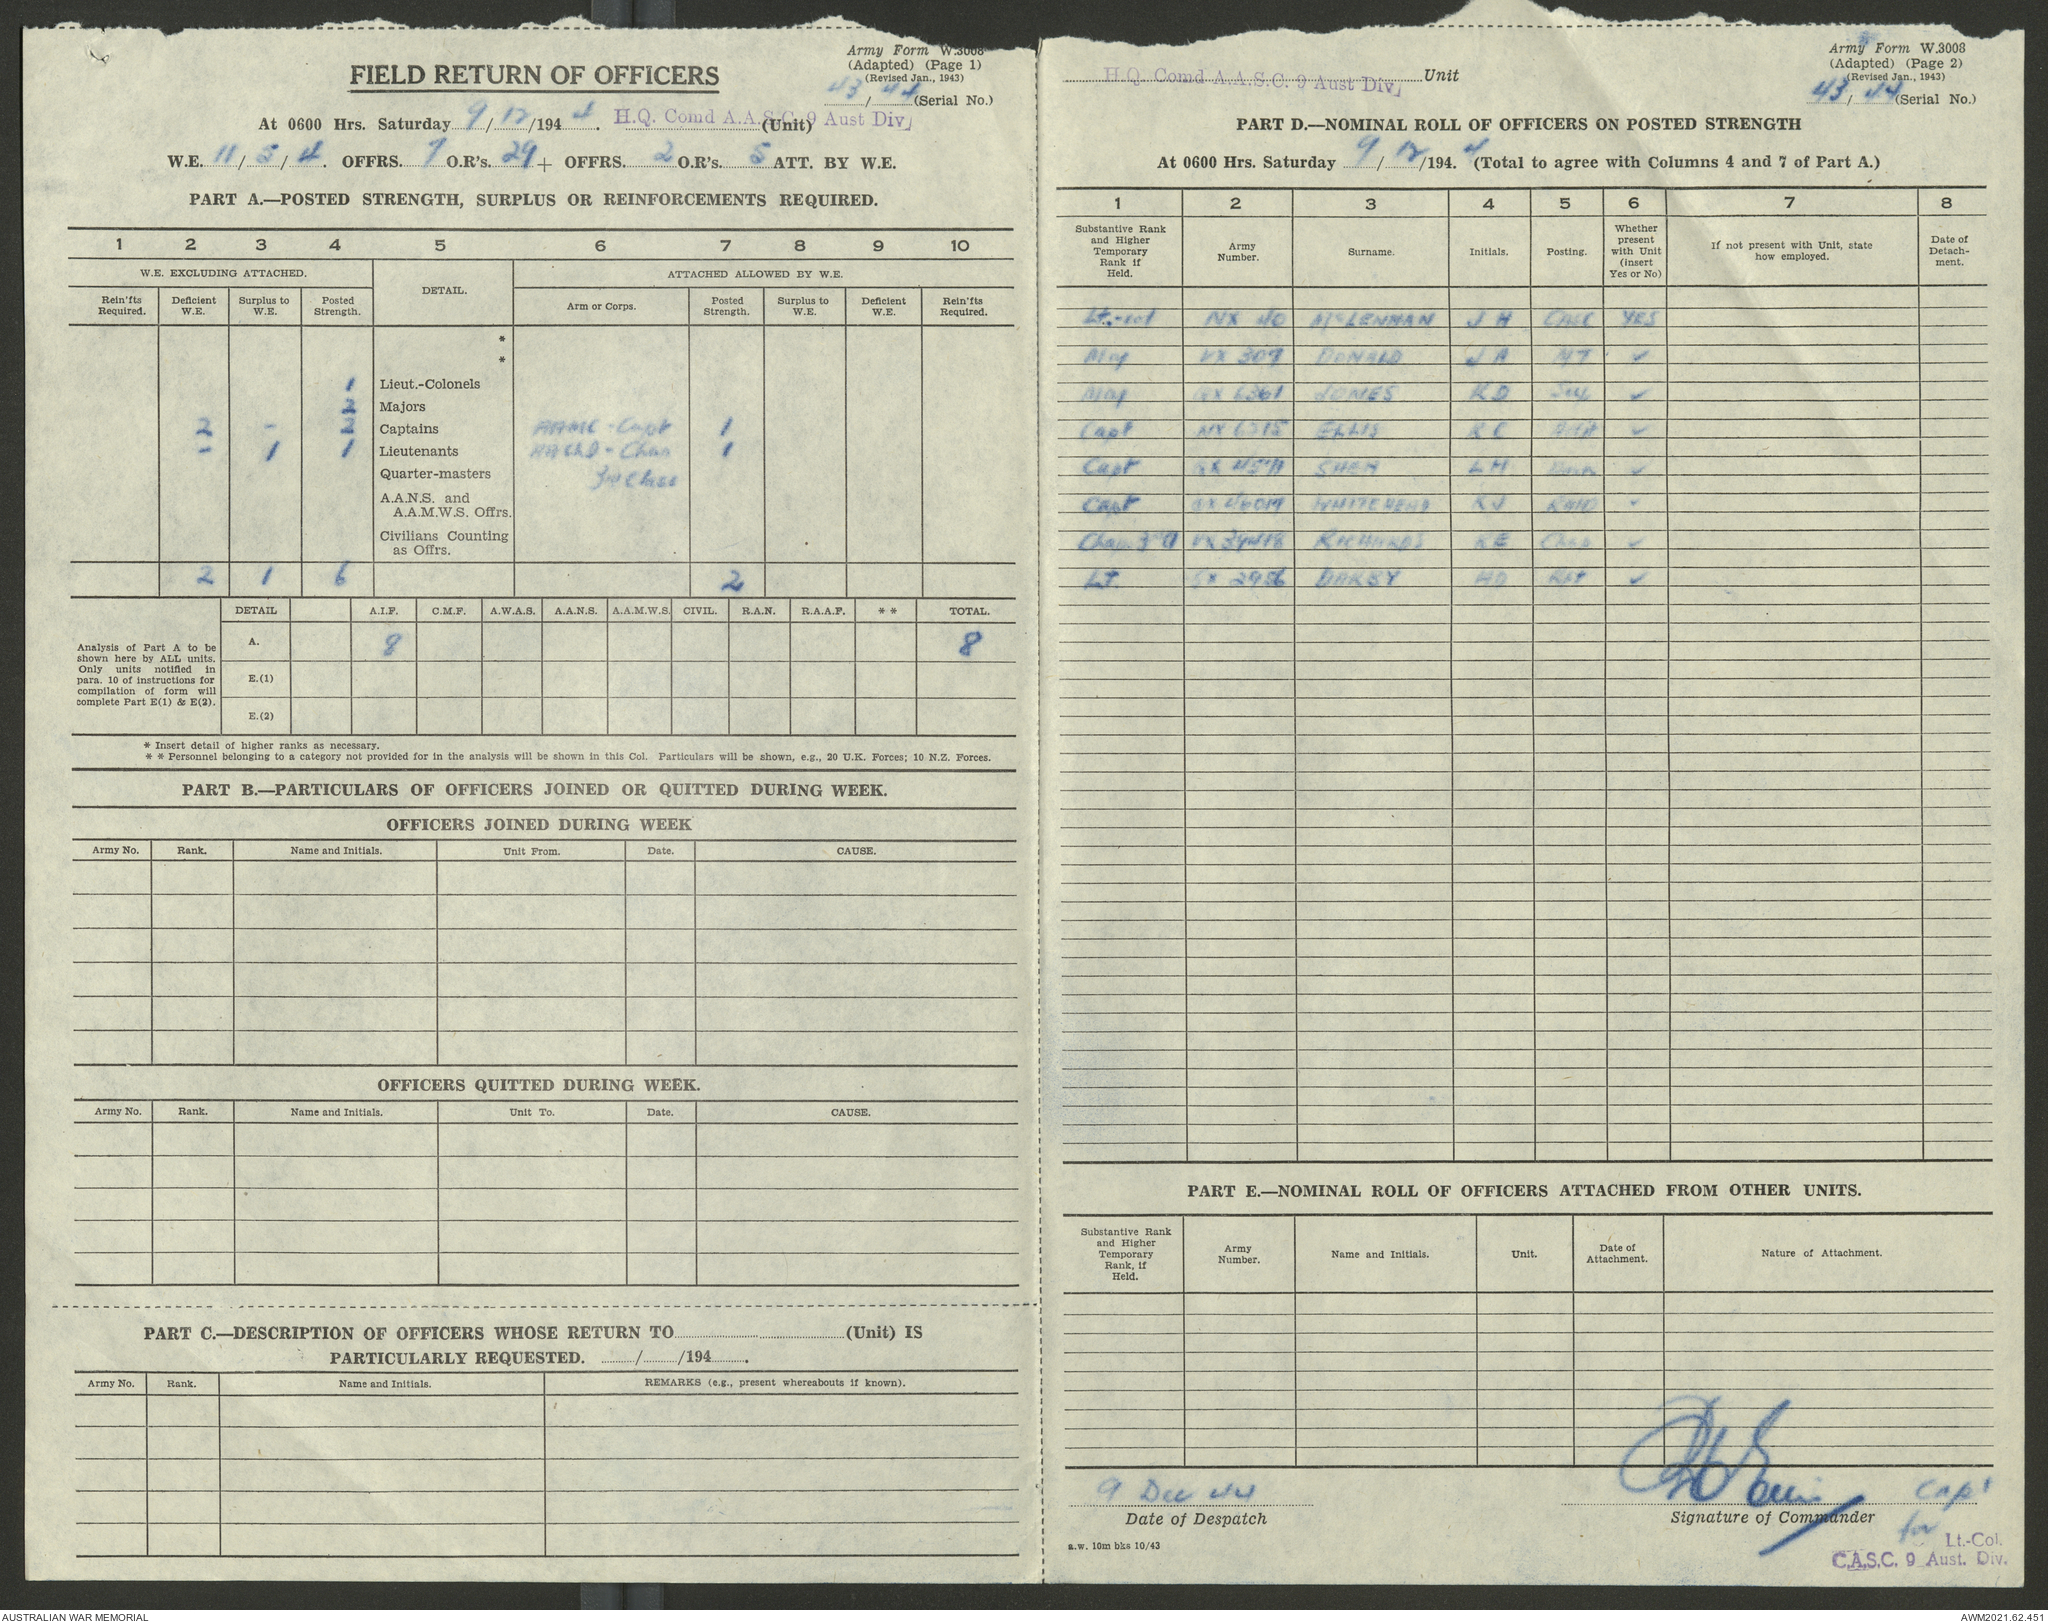 Army Form W.3008
(Adapted) (Page 1)
(Revised Jan., 1943)
43/44 (Serial No.)
FIELD RETURN OF OFFICERS
At 0600 Hrs. Saturday 9/12/1944. H.Q. Comd A.A.S.C. 9 Aust Div. (Unit)
W.E. 11/5/4. OFFRS. 7 O.R's. 29 + OFFRS. 2 O.R's. 5 ATT. BY W.E.
PART A.—POSTED STRENGTH, SURPLUS OR REINFORCEMENTS REQUIRED.
1 2 3 4 5 6 7 8 9 10
W.E. EXCLUDING ATTACHED. DETAIL. ATTACHED ALLOWED BY W.E.
Rein'fts Required. Deficient W.E. Surplus to W.E. Posted Strength. Arm or Corps. Posted Strength. Surplus to W.E. Deficient W.E. Rein'fts Required.
*
*
1 Lieut.-Colonels
2 Majors
2 - 2 Captains AAMC - Capt 1
- 1 1 Lieutenants AAChD - Chap 1
Quarter-masters 3rd Class
A.A.N.S. and
A.A.M.W.S. Offrs.
Civilians Counting
as Offrs.
2 1 6 2
DETAIL A.I.F. C.M.F. A.W.A.S. A.A.N.S. A.A.M.W.S. CIVIL. R.A.N. R.A.A.F. * * TOTAL.
Analysis of Part A to be
shown here by ALL units.
Only units notified in
para. 10 of instructions for
compilation of form will
complete Part E(1) & E(2).
A. 8 8
E.(1)
E.(2)
* Insert detail of higher ranks as necessary.
* * Personnel belonging to a category not provided for in the analysis will be shown in this Col. Particulars will be shown, e.g., 20 U.K. Forces; 10 N.Z. Forces.
PART B.—PARTICULARS OF OFFICERS JOINED OR QUITTED DURING WEEK.
OFFICERS JOINED DURING WEEK
Army No. Rank. Name and Initials. Unit From. Date. CAUSE.
OFFICERS QUITTED DURING WEEK.
Army No. Rank. Name and Initials. Unit To. Date. CAUSE.
PART C.—DESCRIPTION OF OFFICERS WHOSE RETURN TO (Unit) IS
PARTICULARLY REQUESTED. / /194 .
Army No. Rank. Name and Initials. REMARKS (e.g., present whereabouts if known).
Army Form W.3008
(Adapted) (Page 2)
(Revised Jan., 1943)
43/44 (Serial No.)
H.Q. Comd A.A.S.C. 9 Aust Div. Unit
PART D.—NOMINAL ROLL OF OFFICERS ON POSTED STRENGTH
At 0600 Hrs. Saturday 9/12/1944. (Total to agree with Columns 4 and 7 of Part A.)
1 2 3 4 5 6 7 8
Substantive Rank and Higher Temporary Rank if Held. Army Number. Surname. Initials. Posting. Whether present with Unit (insert Yes or No) If not present with Unit, state how employed. Date of Detachment.
Lt.-col NX 40 McLENNAN J H CASC YES
Maj VX 307 DONALD J A MT ✓
Maj JONES R D Sup ✓
Capt NX ELLIS R C ✓
Capt SHEA L H ✓
Capt WHITEHEAD R J ✓
Chap. 3rd Cl VX RICHARDS Chap ✓
Lt. SX 2956 DARBY ✓
PART E.—NOMINAL ROLL OF OFFICERS ATTACHED FROM OTHER UNITS.
Substantive Rank and Higher Temporary Rank, if Held. Army Number. Name and Initials. Unit. Date of Attachment. Nature of Attachment.
9 Dec 44 Capt
Date of Despatch Signature of Commander
for
Lt.-Col.
C.A.S.C. 9 Aust. Div.
a.w. 10m bks 10/43
AUSTRALIAN WAR MEMORIAL AWM2021.62.451